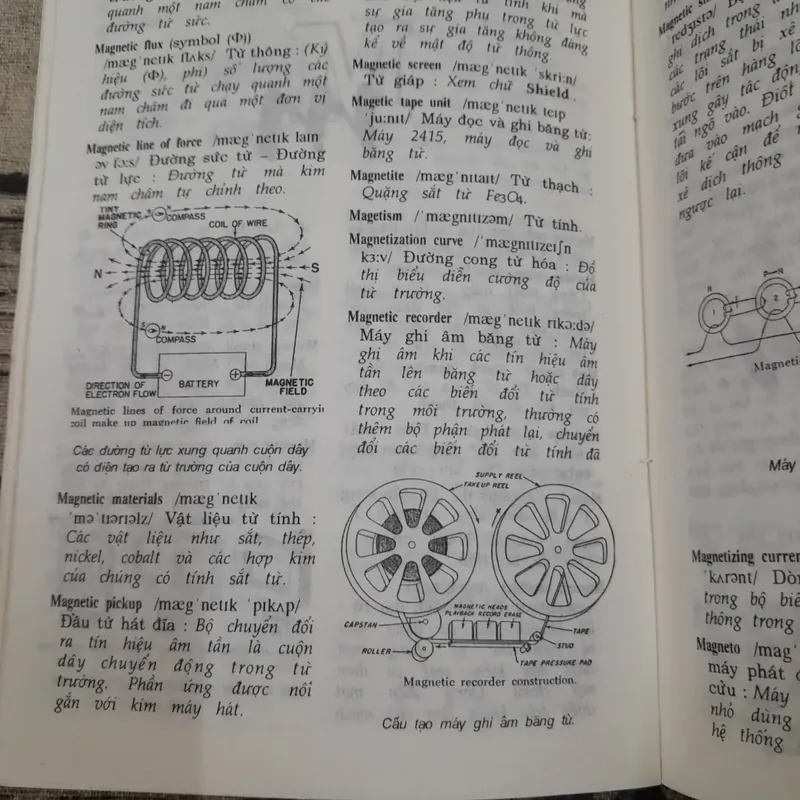 quanh một nam châm có các
đường từ sức.
Magnetic flux (symbol (Φ))
/mægˈnetɪk flʌks/ Từ thông : (Ký
hiệu (Φ), phi) số lượng các
đường sức từ chạy quanh một
nam châm đi qua một đơn vị
diện tích.
Magnetic line of force /mægˈnetɪk laɪn
əv fɔ:s/ Đường sức từ – Đường
từ lực : Đường từ mà kim
nam châm tự chỉnh theo.
TINT
MAGNETIC
RING
COMPASS
COIL OF WIRE
N
S
COMPASS
DIRECTION OF
ELECTRON FLOW
BATTERY
MAGNETIC
FIELD
Magnetic lines of force around current-carryin
coil make up magnetic field of coil
Các đường từ lực xung quanh cuộn dây
có điện tạo ra từ trường của cuộn dây.
Magnetic materials /mægˈnetɪk
ˈməˈtɪərɪəlz/ Vật liệu từ tính :
Các vật liệu như sắt, thép,
nickel, cobalt và các hợp kim
của chúng có tính sắt từ.
Magnetic pickup /mægˈnetɪk ˈpɪkʌp/
Đầu từ hát đĩa : Bộ chuyển đổi
ra tín hiệu âm tần là cuộn
dây chuyển động trong từ
trường. Phần ứng được nối
gắn với kim máy hát.
tính khi mà
sự gia tăng phụ trong từ lực
tạo ra sự gia tăng không đáng
kể về mật độ từ thông.
Magnetic screen /mægˈnetɪk ˈskri:n/
Từ giáp : Xem chữ Shield.
Magetic tape unit /mægˈnetɪk teɪp
ˈju:nɪt/ Máy đọc và ghi băng từ:
Máy 2415, máy đọc và ghi
băng từ.
Magnetite /mægˈnɪtaɪt/ Từ thạch :
Quặng sắt từ Fe3O4.
Magetism /ˈmægnɪtɪzəm/ Từ tính.
Magnetization curve /ˈmægnɪtɪzeɪʃn
kɜ:v/ Đường cong từ hóa : Đồ
thị biểu diễn cường độ của
từ trường.
Magnetic recorder /mægˈnetɪk rɪkɔ:də/
Máy ghi âm băng từ : Máy
ghi âm khi các tín hiệu âm
tần lên băng từ hoặc dây
theo các biến đổi từ tính
trong môi trường, thường có
thêm bộ phận phát lại, chuyển
đổi các biến đổi từ tính đã
SUPPLY REEL
TAKEUP REEL
CAPSTAN
MAGNETIC HEADS
PLAYBACK RECORD ERASE
TAPE
STUD
ROLLER
TAPE PRESSURE PAD
Magnetic recorder construction.
Cấu tạo máy ghi âm băng từ.
ghi dịch trong
các trạng thái
các lõi sắt bị xê
bước trên hàng
xung gây tác động
tại ngõ vào. Điốt
đưa vào mạch
lõi kế cận để
xê dịch thông
ngược lại.
1
2
Magneti
Máy
Magnetizing curren
ˈkʌrənt/ Dòn
trong bộ biế
thông trong
Magneto /mag
máy phát đ
cửu : Máy
nhỏ dùng
hệ thống